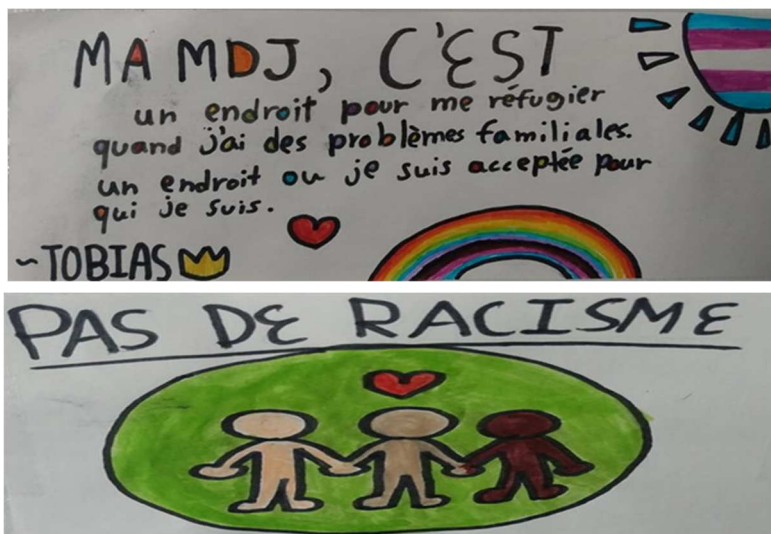 MA MDJ, C'EST
un endroit pour me réfugier
quand j'ai des problèmes familiales.
un endroit ou je suis acceptée pour
qui je suis.
~TOBIAS
PAS DE RACISME